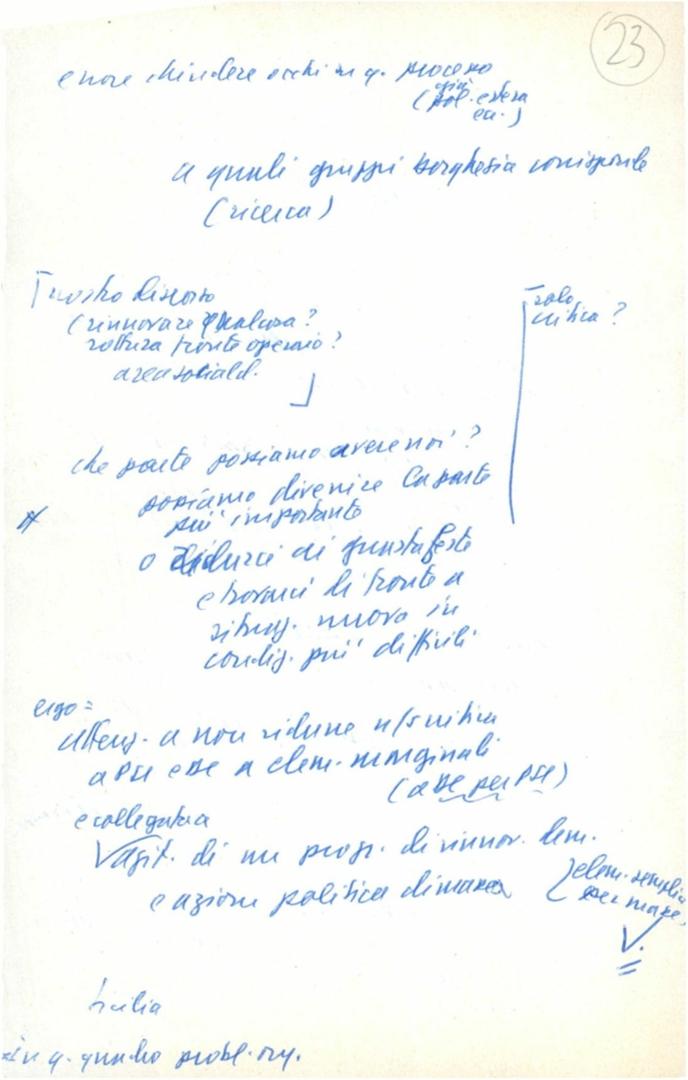 23
errore chiudere occhi su q. processo
(già
pol. estera
ecc.)
a quali gruppi borghesia corrisponde
(ricerca)
nostro discorso
(rinnovare qualcosa?
rottura fronte operaio?
area sociald.
solo
critica?
che parte possiamo avere noi?
possiamo divenire la parte
più importante
o ridurci di questa feste
e trovarci di fronte a
situaz. nuova in
condiz. più difficili
ergo =
attenz. a non ridurre n/s critica
a PSI e DC a elem. marginali
(a DC per PSI)
e collegarla
agit. di un progr. di rinnov. dem.
e azione politica di massa
elem. semplici
per mass.
V.
Sicilia
in q. quadro probl. org.